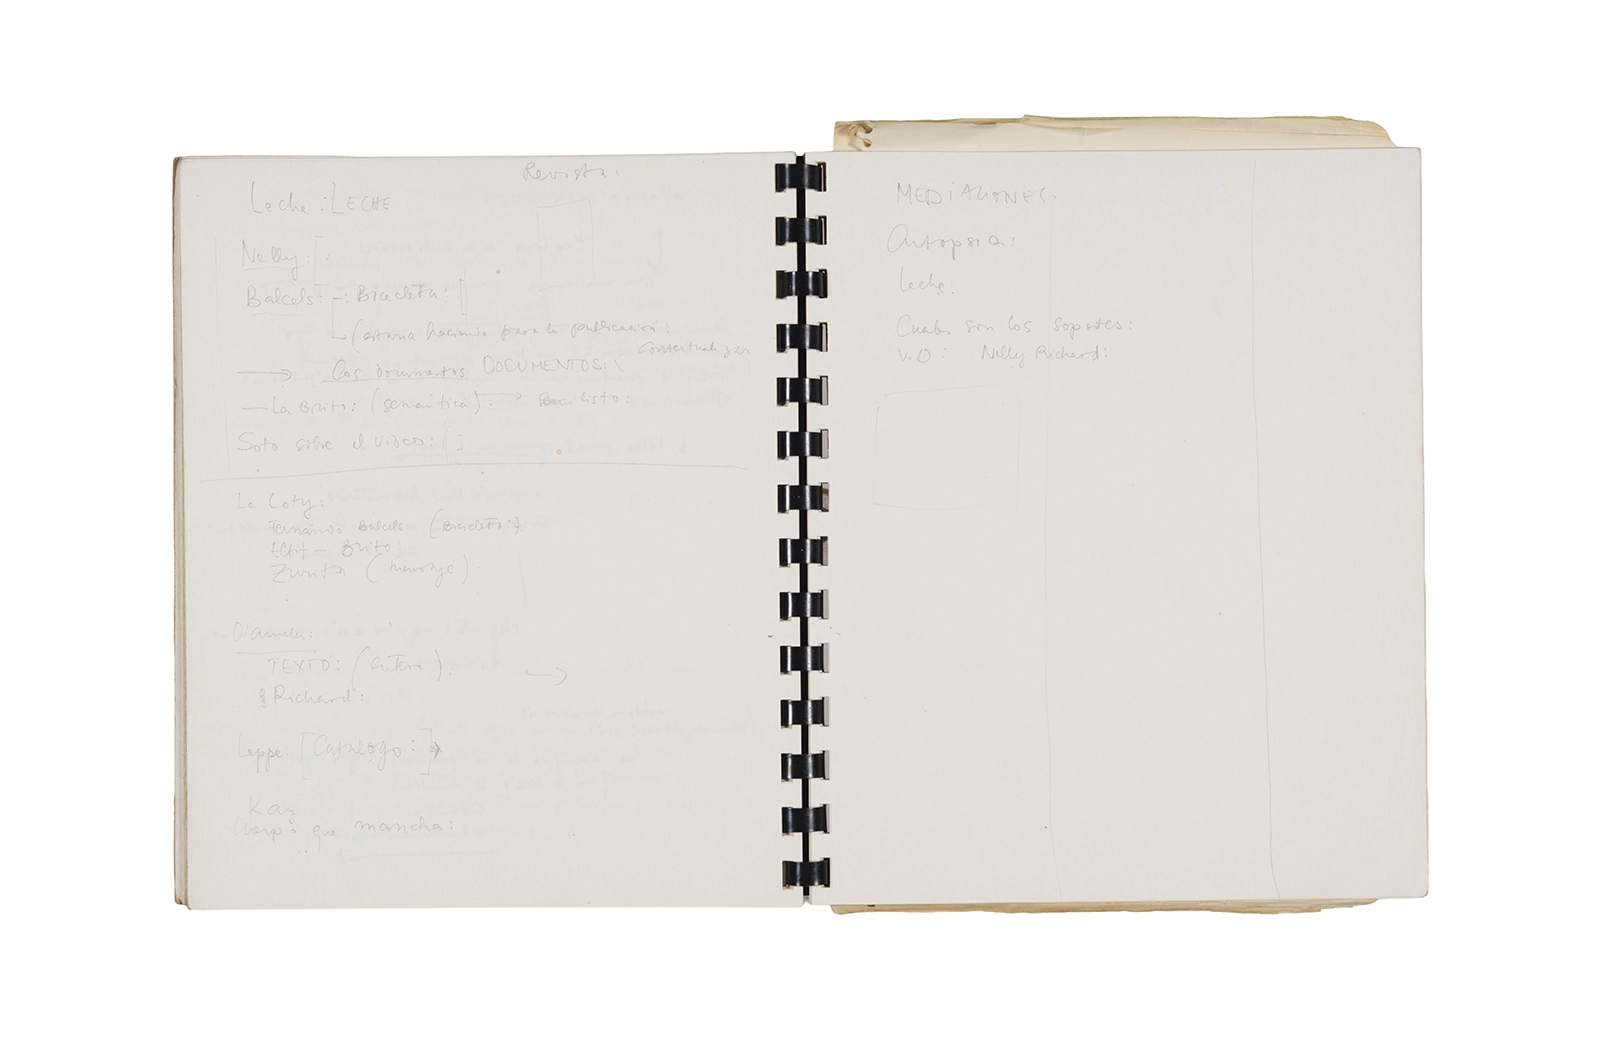 Revista.
Leche : LECHE
Nelly:
Balcels: -: Bicicleta:
( para la publicación:
contextualizar
Los documentos DOCUMENTOS:
— La Brito: (semantica): listo:
Soto sobre el video:
La Coty:
Fernando Balcels (Bicicleta:)
Brito:
Zurita (mensaje)
Diamela:
TEXTO: (entero).
Richard:
Leppe: [Catálogo:]
Kay
Cuerpo que mancha:
MEDIACIONES.
Autopsia:
Leche:
Cuales son los soportes:
V.O: Nelly Richard: